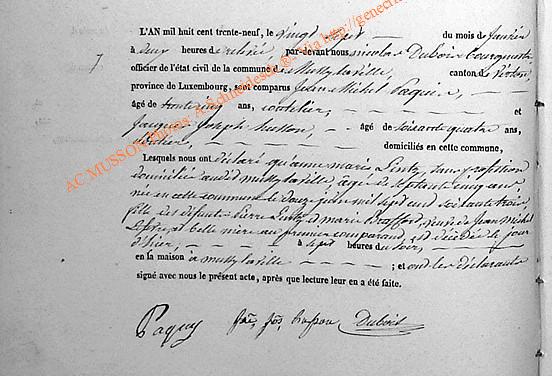 L'AN mil huit cent trente-neuf, le vingt sept du mois de Janvier
7
à deux heures de relevée, par-devant nous nicolas Dubois Bourgmestre
officier de l'état civil de la commune de Mussy la ville, canton de Virton,
province de Luxembourg, sont comparus Jean Michel Paquier,
âgé de trente cinq ans, et
Jacques Joseph âgé de soixante quatre ans,
domiciliés en cette commune,
Lesquels nous ont déclaré qu'anne marie Lintz, sans profession
domiciliée audit mussy la ville, âgée de septante cinq ans
née en cette commune le douze juin mil sept cent soixante trois,
fille des défunts pierre Lintz et marie veuve de Jean Michel
et belle mère au premier comparant, est décédée le jour
d'hier, à sept heures du soir,
en la maison à mussy la ville ; et ont les déclarants
signé avec nous le présent acte, après que lecture leur en a été faite.
Paquy Dubois
AC MUSSON